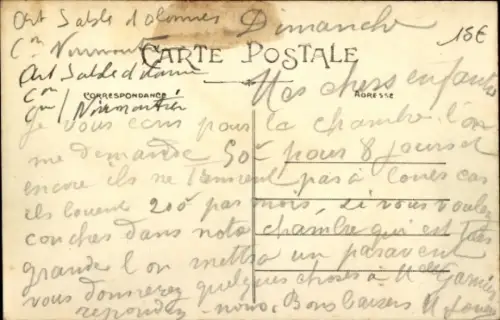 Art Sable d'olonnes
Cn Noirmoutier
Art Sable d'olonne
Cn
Gm / Noirmoutier
15€
Dimanche
CARTE POSTALE
CORRESPONDANCE
ADRESSE
Mes chers enfants
Je vous écris pour la chambre l'on
me demande 50f pour 8 jours et
encore ils ne tiennent pas à louer car
ils louent 200 par mois, si vous voulez
coucher dans notre chambre qui est très
grande l'on mettra un paravent
vous donnerez quelques choses à Mlle Garnier
répondez-nous. Bons baisers